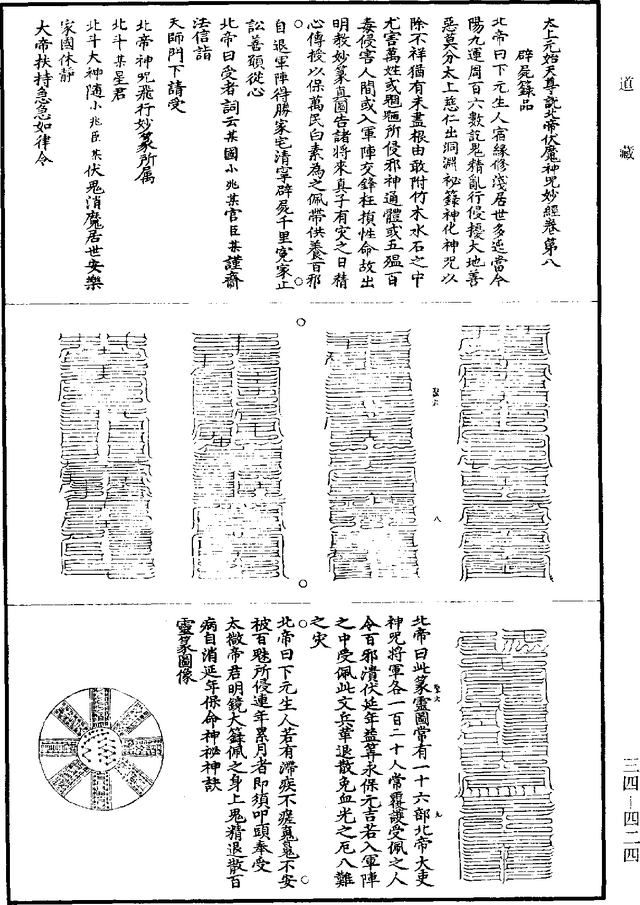 道藏
太上元始天尊說北帝伏魔神咒妙經卷第八
辟屍籙品
北帝曰下元生人宿緣修淺居世多迍當今
陽九運周百六數訖鬼精亂行侵擾大地善
惡莫分太上慈仁出洞淵祕籙神化神咒以
除不祥猶有未盡根由敢附竹木水石之中
尤害萬姓或魍魎所侵邪神通體或五瘟百
毒侵害人間或入軍陣交鋒枉損性命故出
明教妙篆真圖告諸將來真子有灾之日精
心傳授以保萬民白素為之佩帶供養百邪
自退軍陣得勝家宅清寧辟屍千里寃家止
訟善願從心
北帝曰受者詞云某國小兆某官臣某謹齎
法信詣
天師門下請受
北帝神咒飛行妙篆所属
北斗某星君
北斗大神隨小兆臣某伏鬼消魔居世安樂
家國休静
大帝扶持急急如律令
聖六
八
北帝曰此篆靈圖當有一十六部北帝大吏
神咒將軍各一百二十人常覆護受佩之人
令百邪潰伏延年益筭永保元吉若入軍陣
之中受佩此文兵革退散免血光之厄八難
之灾
聖六
九
北帝曰下元生人若有滯疾不瘥魂魄不安
被百魅所侵連年累月者即須叩頭奉受
太微帝君明鏡大籙佩之身上鬼精退散百
病自消延年保命神祕神訣
靈篆圖像
三四—四二四